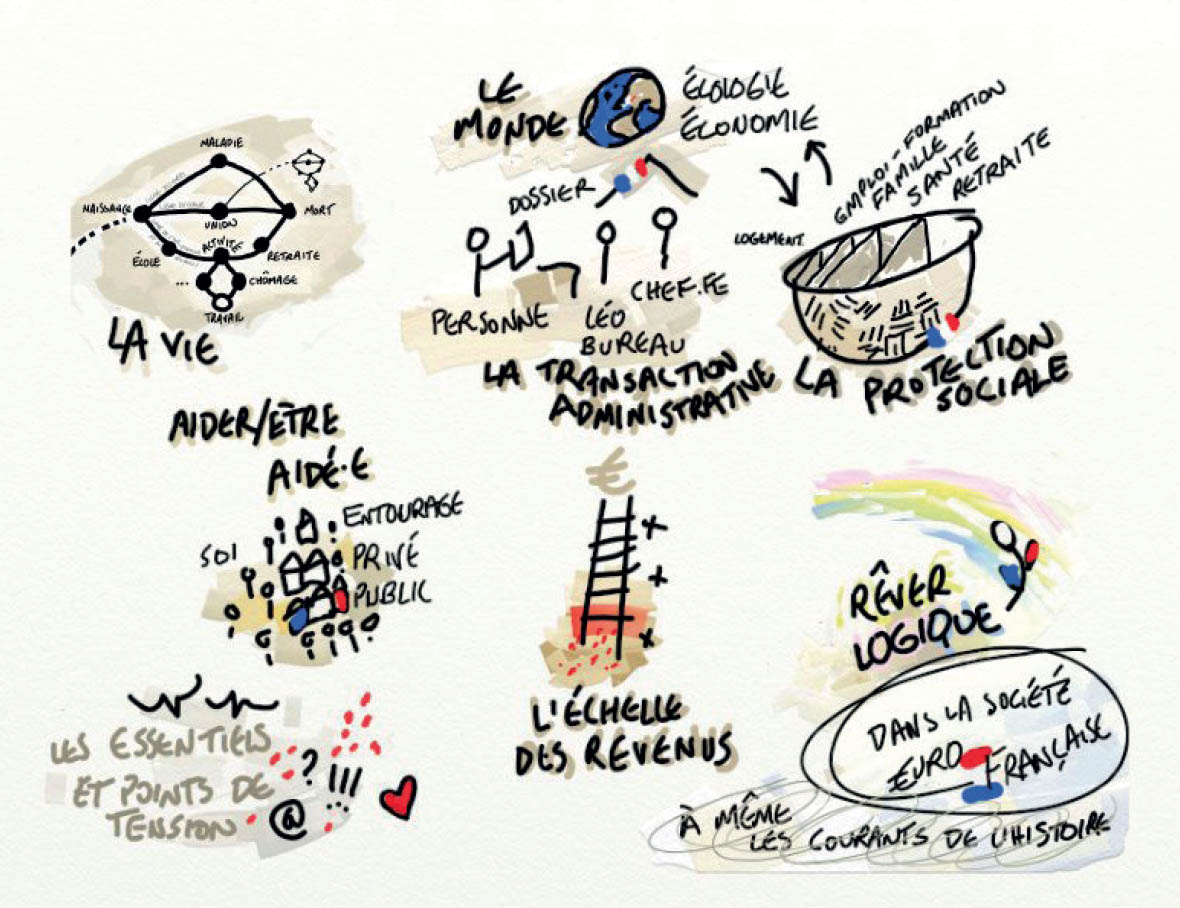 LE
MONDE
ÉCOLOGIE
ÉCONOMIE
MALADIE
NAISSANCE
MORT
UNION
ACTIVITÉ
ÉCOLE
RETRAITE
...
CHÔMAGE
TRAVAIL
LA VIE
DOSSIER
PERSONNE
LÉO
BUREAU
CHEF.FE
LA TRANSACTION
ADMINISTRATIVE
EMPLOI - FORMATION
FAMILLE
SANTÉ
RETRAITE
LOGEMENT
LA PROTECTION
SOCIALE
AIDER/ÊTRE
AIDÉ·E
ENTOURAGE
SOI
PRIVÉ
PUBLIC
€
+
+
x
L'ÉCHELLE
DES REVENUS
RÊVER
LOGIQUE
LES ESSENTIELS
ET POINTS DE
TENSION
?
!!!
@
DANS LA SOCIÉTÉ
EURO FRANÇAISE
À MÊME
LES COURANTS DE L'HISTOIRE